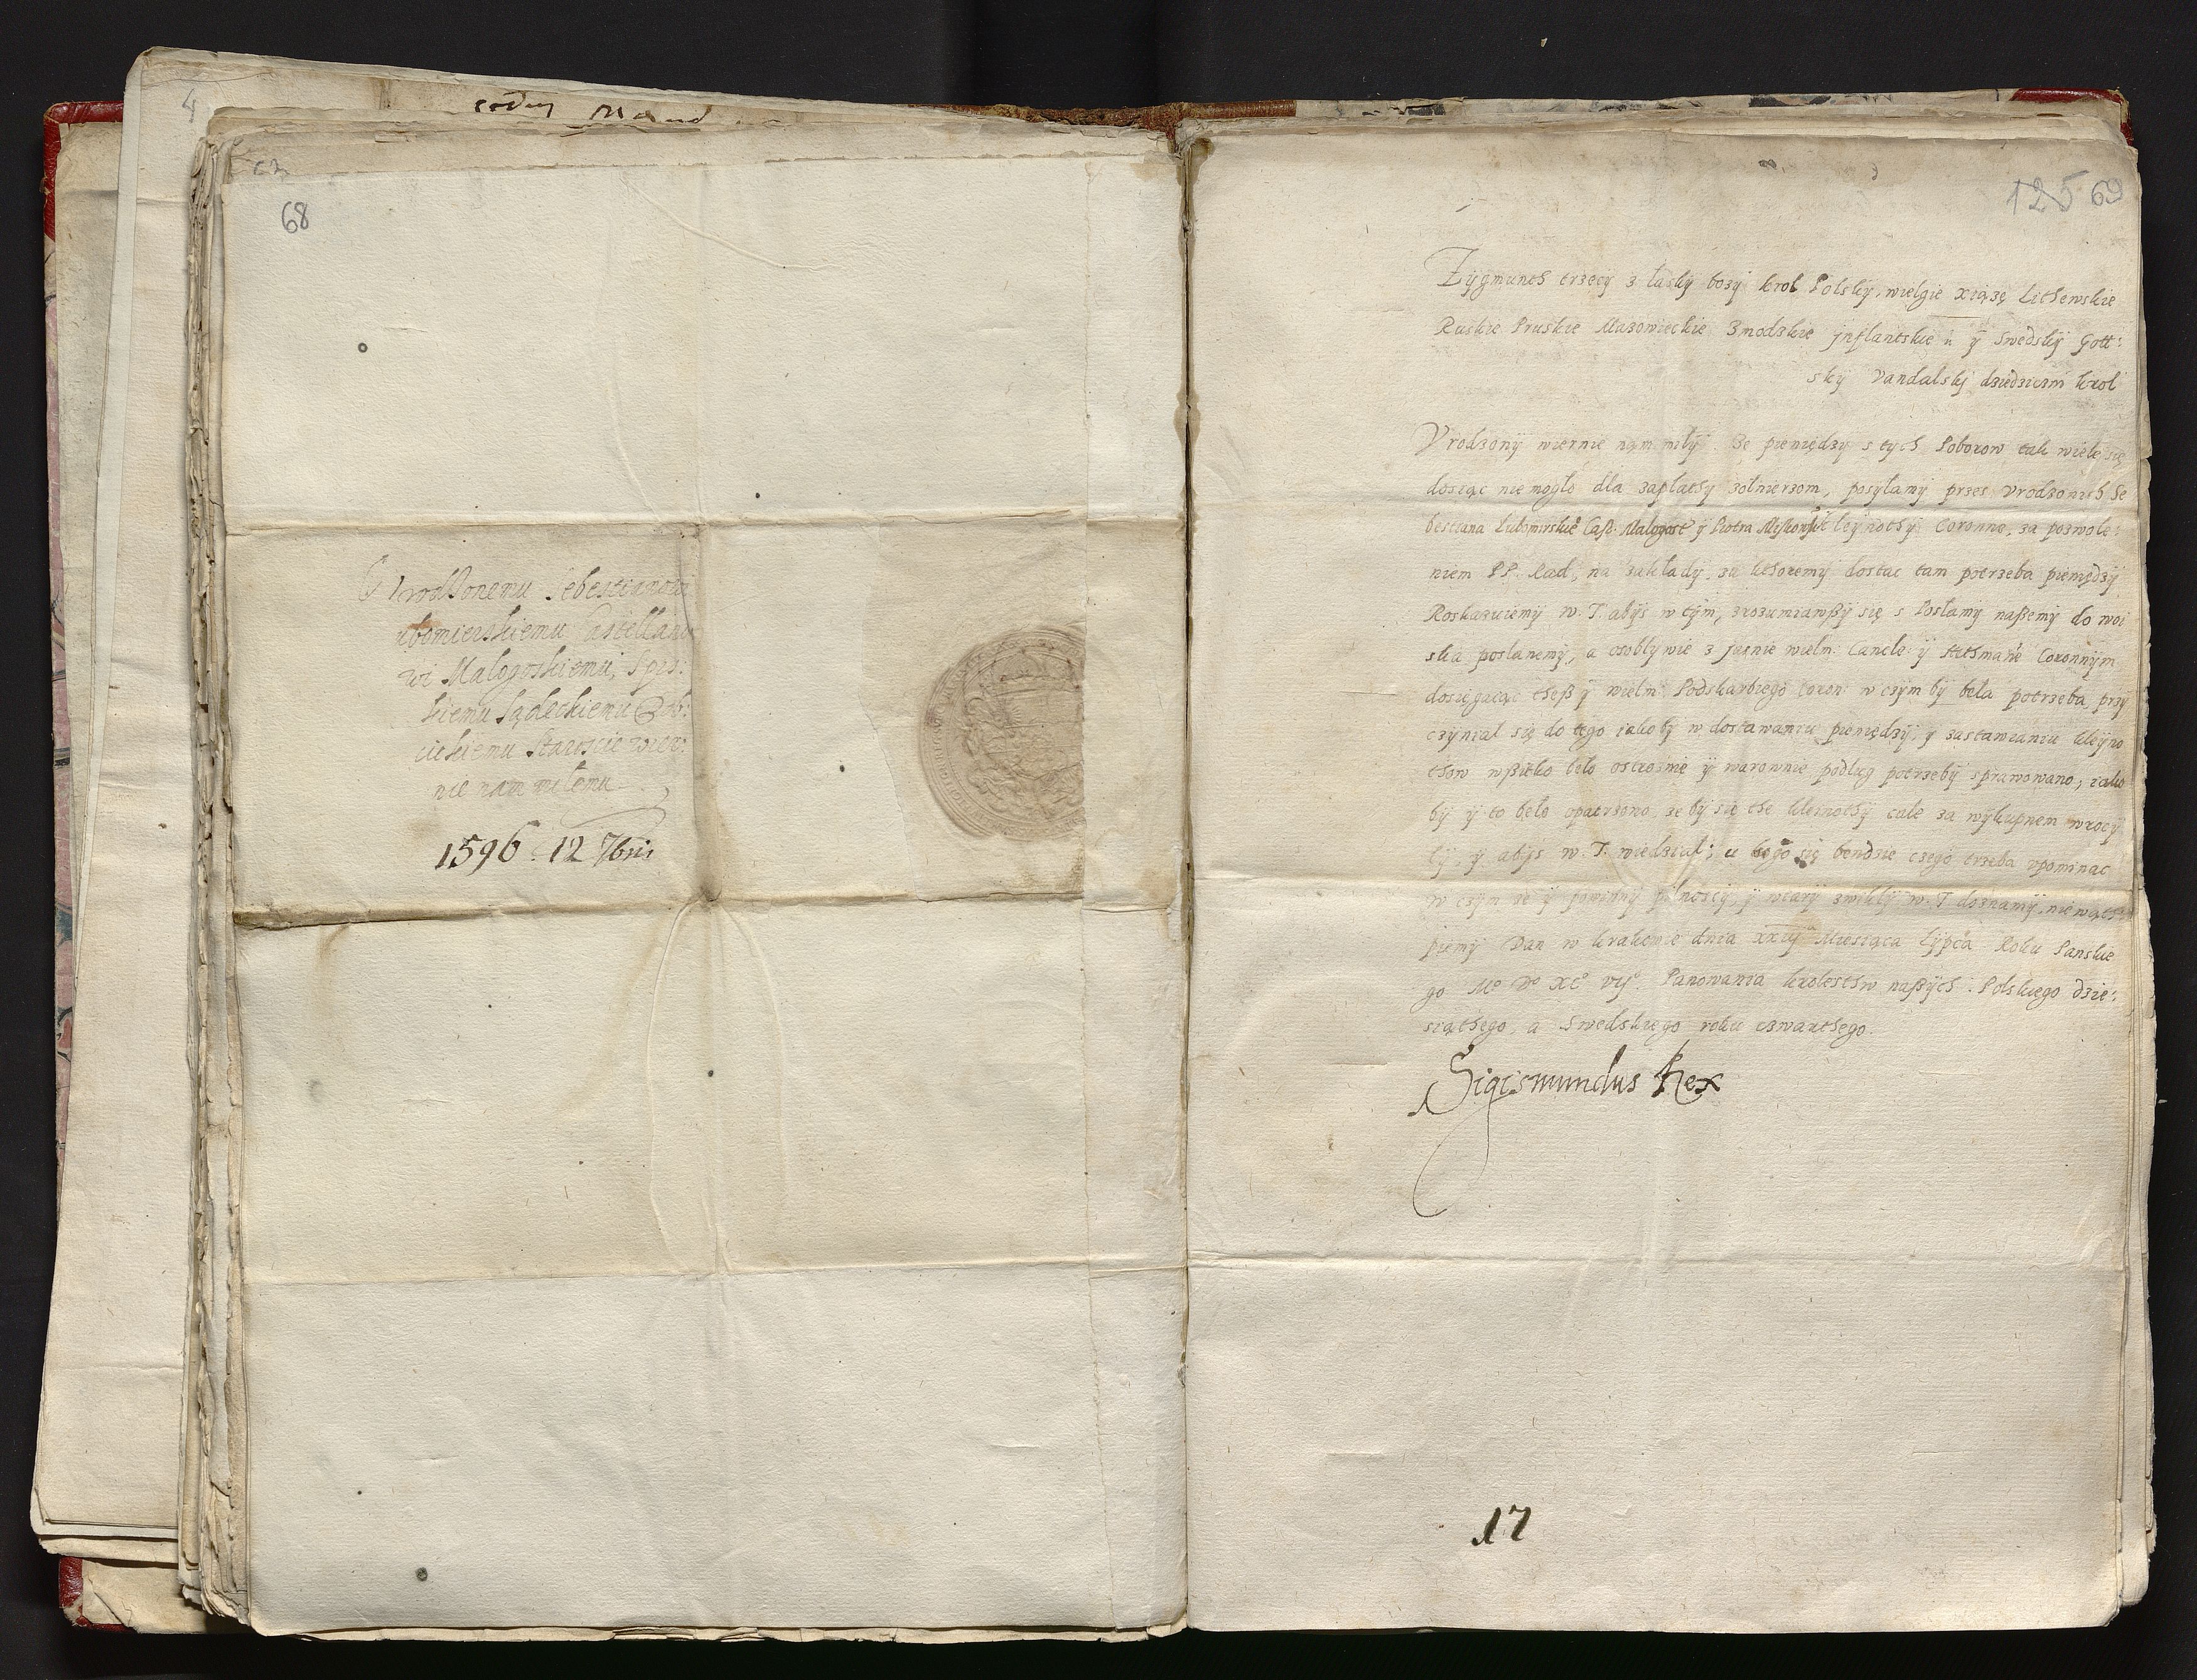 4
68
Urodzonemu Sebestianowi
ubomierskiemu Castellano
wi Malogoskiemu, Spis:
kiemu Sądeckiemu Dob:
cickiemu Staroscie wier:
nie nam miłemu
1596. 12 7bris
125 69
Zÿgmunth trzecÿ z łaskÿ bozÿ krol Polskÿ, wielgie xiążę Lithewskie
Ruskie Pruskie Mazowieckie Zmodzkie jnflantskie ÿ Swedskÿ Gott:
skÿ Vandalskj dziedzicznÿ krol
Vrodzonÿ wiernie nam miłÿ. Ze pieniędzÿ s tych Poborow tak wiele się
dosiąc nie mogło dla zapłathÿ zołnierzom, posÿłamÿ przes vrodzonich Se
bestiana Lubomirskie° Cast. Malogost ÿ Piotra kleÿnothÿ Coronne, za pozwole:
niem PP. Rad, na zakładÿ, za kthoremÿ dostac tam potrzeba pieniędzÿ
Roskazuiemÿ w. T. abÿs w tÿm, zrozumiawßÿ się s Posłamÿ naßemÿ do woi
ska posłanemÿ, a osoblÿwie z jasnie wielm. Cancle. ÿ Hethmane Coronnÿm
dosięgaiąc theß ÿ wielm. Podskarbiego Coron. w czÿm bÿ beła potrzeba, przÿ
czÿniał się do tego iakobÿ w dostawaniu pieniędzÿ, ÿ zastawianiu kleÿno
thow wßitko beło ostroznie ÿ warownie podług potrzebÿ sprawowano; iako
bÿ ÿ to beło opatrzono ze bÿ się the kleinothÿ cale za wÿkupnem wrocÿ
łÿ, ÿ abÿs w. T. wiedział, u kogo się bendzie czego trzeba vpominac
w czÿm ze ÿ powinnÿ pilnoscÿ, ÿ wiarÿ zwÿkłÿ w. T. doznamÿ, nie wąth
piemÿ Dan w Krakowie dnia Miesiąca Lÿpca Roku Panskie
go M° D° XC° vij°. Panowania krolesthw naßÿch: Polskiego dzie:
siąthego, a Swedskiego roku czwarthego.
Sigismundus Rex
17